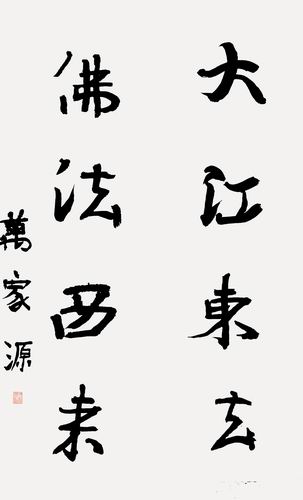 大江東去
佛法西来
萬家源